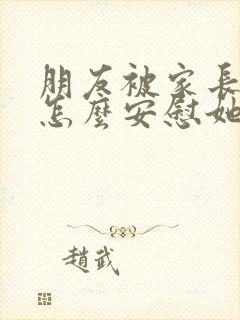 朋友被家長
怎麼安慰她
趙武